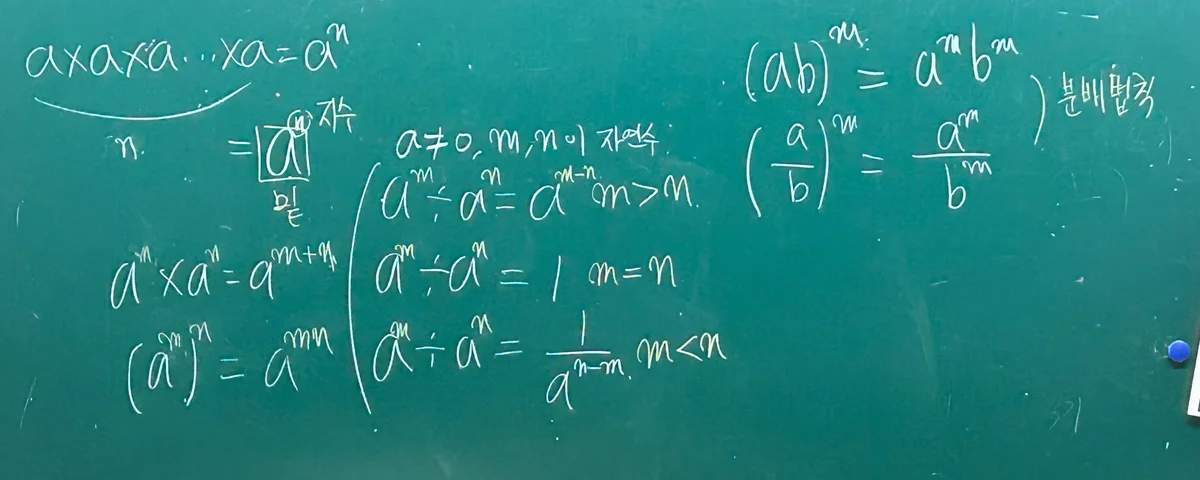 a×a×a...×a=aⁿ
n
=aⁿ 지수
밑
aᵐ×aⁿ=aᵐ⁺ⁿ
(aᵐ)ⁿ=aᵐⁿ
a≠0, m, n이 자연수
aᵐ÷aⁿ=aᵐ⁻ⁿ m>n
aᵐ÷aⁿ=1 m=n
aᵐ÷aⁿ=1/aⁿ⁻ᵐ m<n
(ab)ᵐ=aᵐbᵐ
(a/b)ᵐ=aᵐ/bᵐ
분배법칙